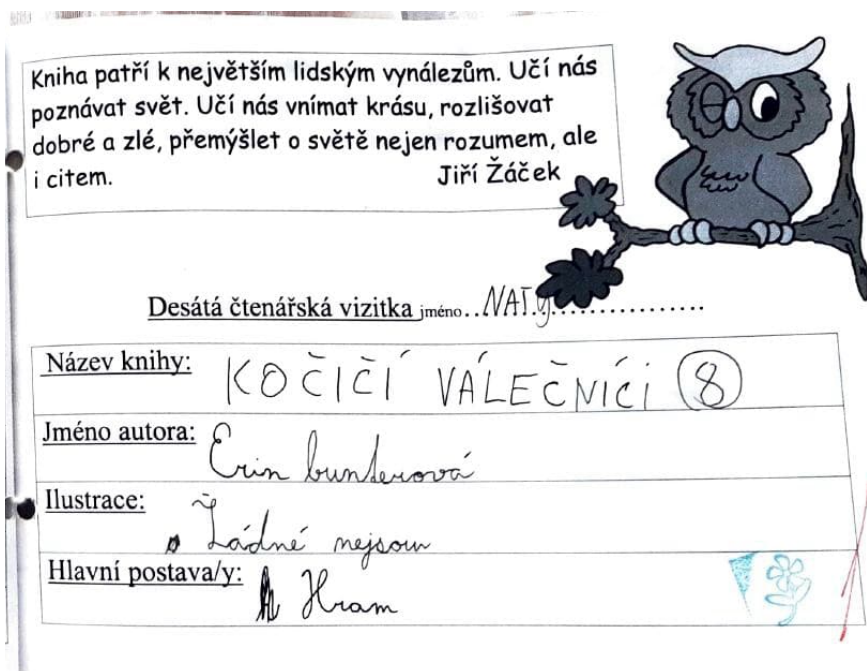 Kniha patří k největším lidským vynálezům. Učí nás
poznávat svět. Učí nás vnímat krásu, rozlišovat
dobré a zlé, přemýšlet o světě nejen rozumem, ale
i citem. Jiří Žáček
Desátá čtenářská vizitka jméno..NATY..................
Název knihy: KOČIČÍ VÁLEČNÍCI 8
Jméno autora: Erin bunterová
Ilustrace: Žádné nejsou
Hlavní postava/y: Hram